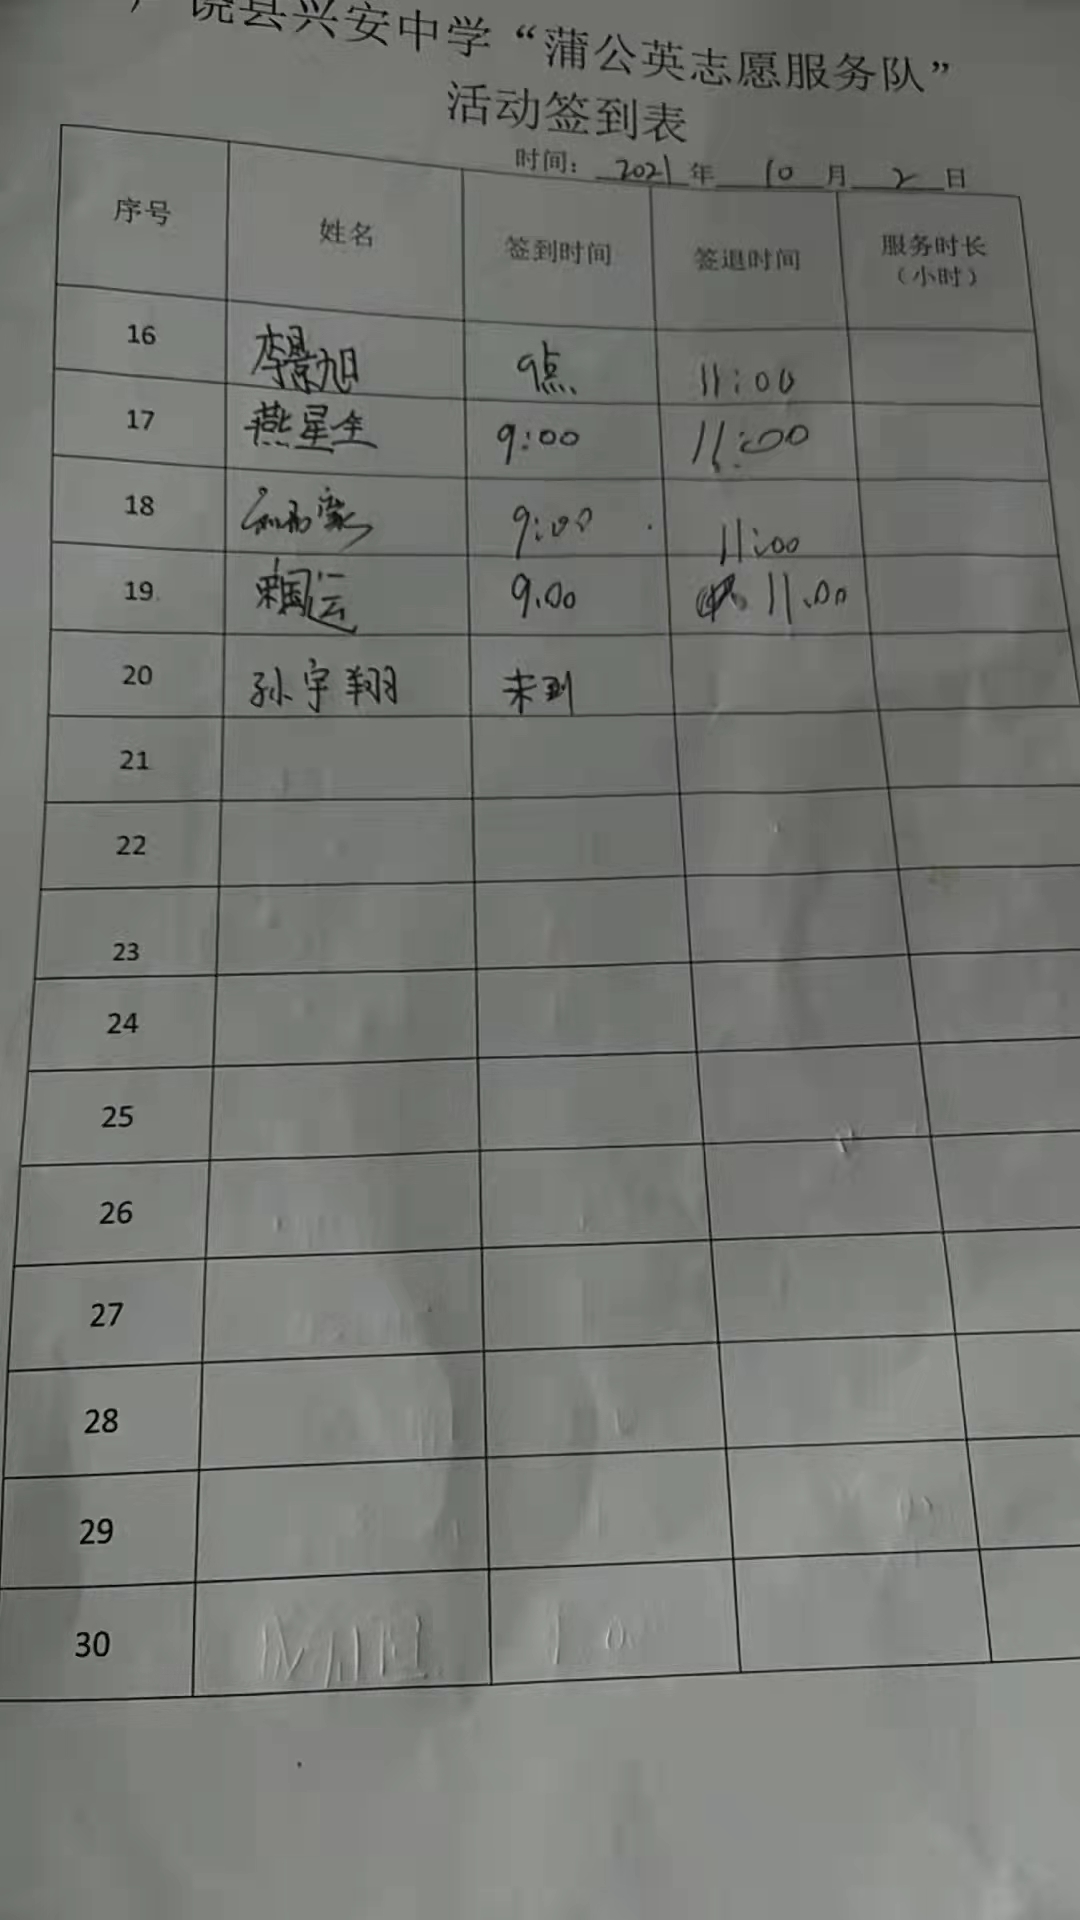 广饶县兴安中学“蒲公英志愿服务队”
活动签到表
时间：2021年10月2日
序号 姓名 签到时间 签退时间 服务时长（小时）
16 李景旭 9点 11:00
17 燕星全 9:00 11:00
18 9:00 11:00
19 国运 9.00 11.00
20 孙宇翔 未到
21
22
23
24
25
26
27
28
29
30